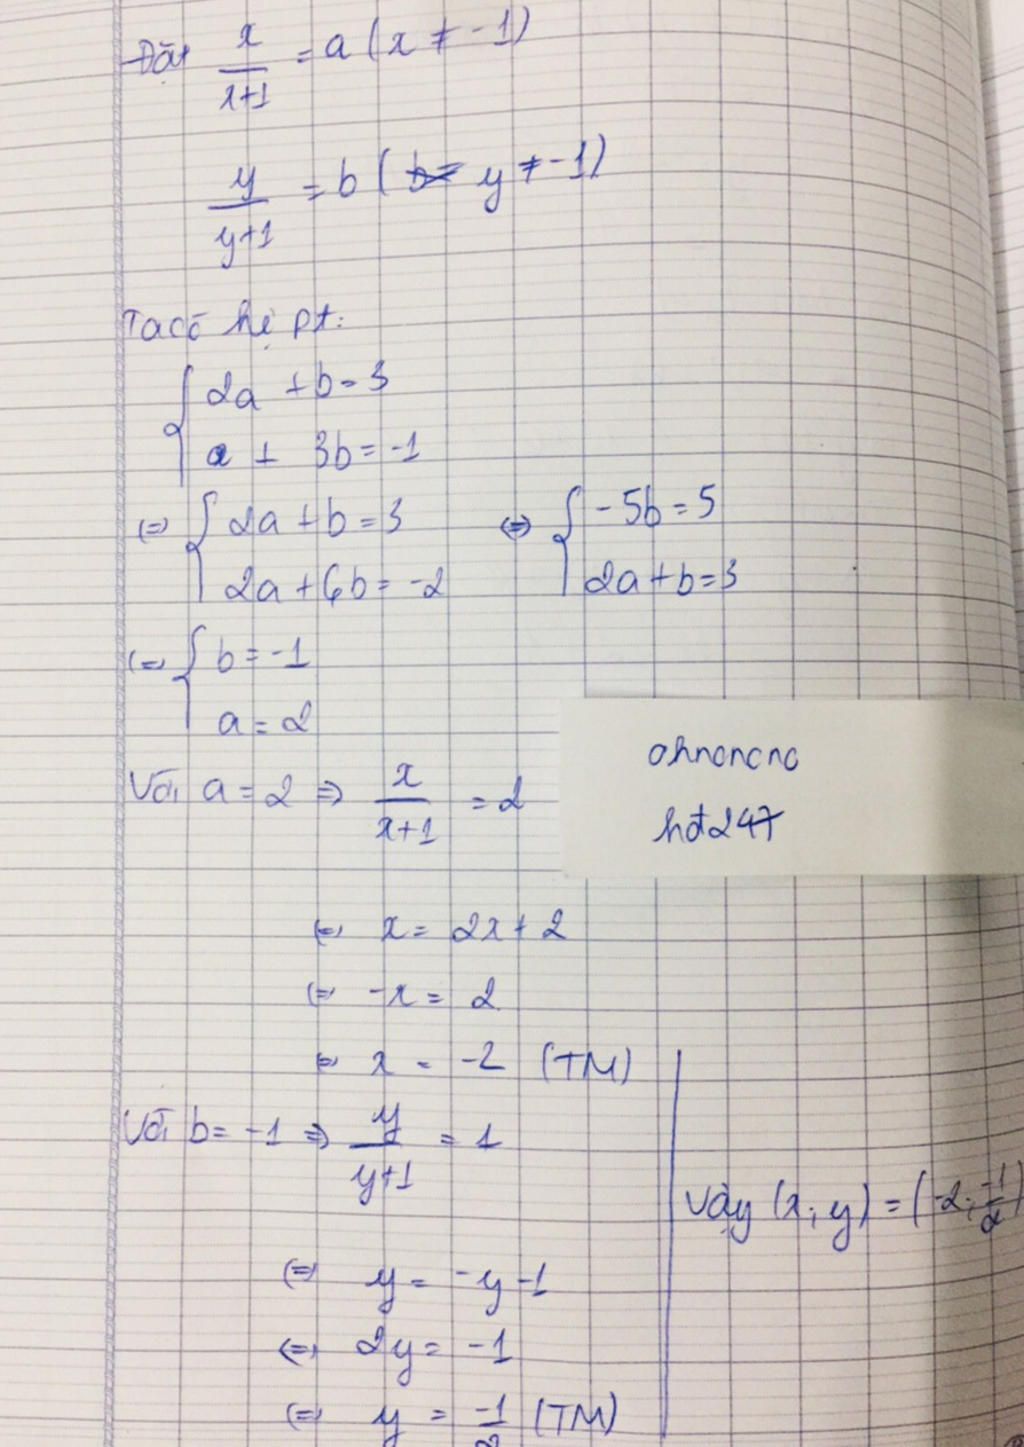 Đặt x/x+1 = a (x ≠ -1)
y/y+1 = b (b= y ≠ -1)
Ta có hệ pt:
{ 2a + b = 3
a + 3b = -1
(=) { 2a + b = 3
2a + 6b = -2
(=) { -5b = 5
2a + b = 3
(=) { b = -1
a = 2
Với a = 2 => x/x+1 = 2
ohncncnc
hđ247
(=) x = 2x + 2
(=) -x = 2
(=) x = -2 (TM)
Với b = -1 => y/y+1 = 1
(=) y = -y -1
(=) 2y = -1
(=) y = -1/2 (TM)
Vậy (x; y) = (-2; -1/2)